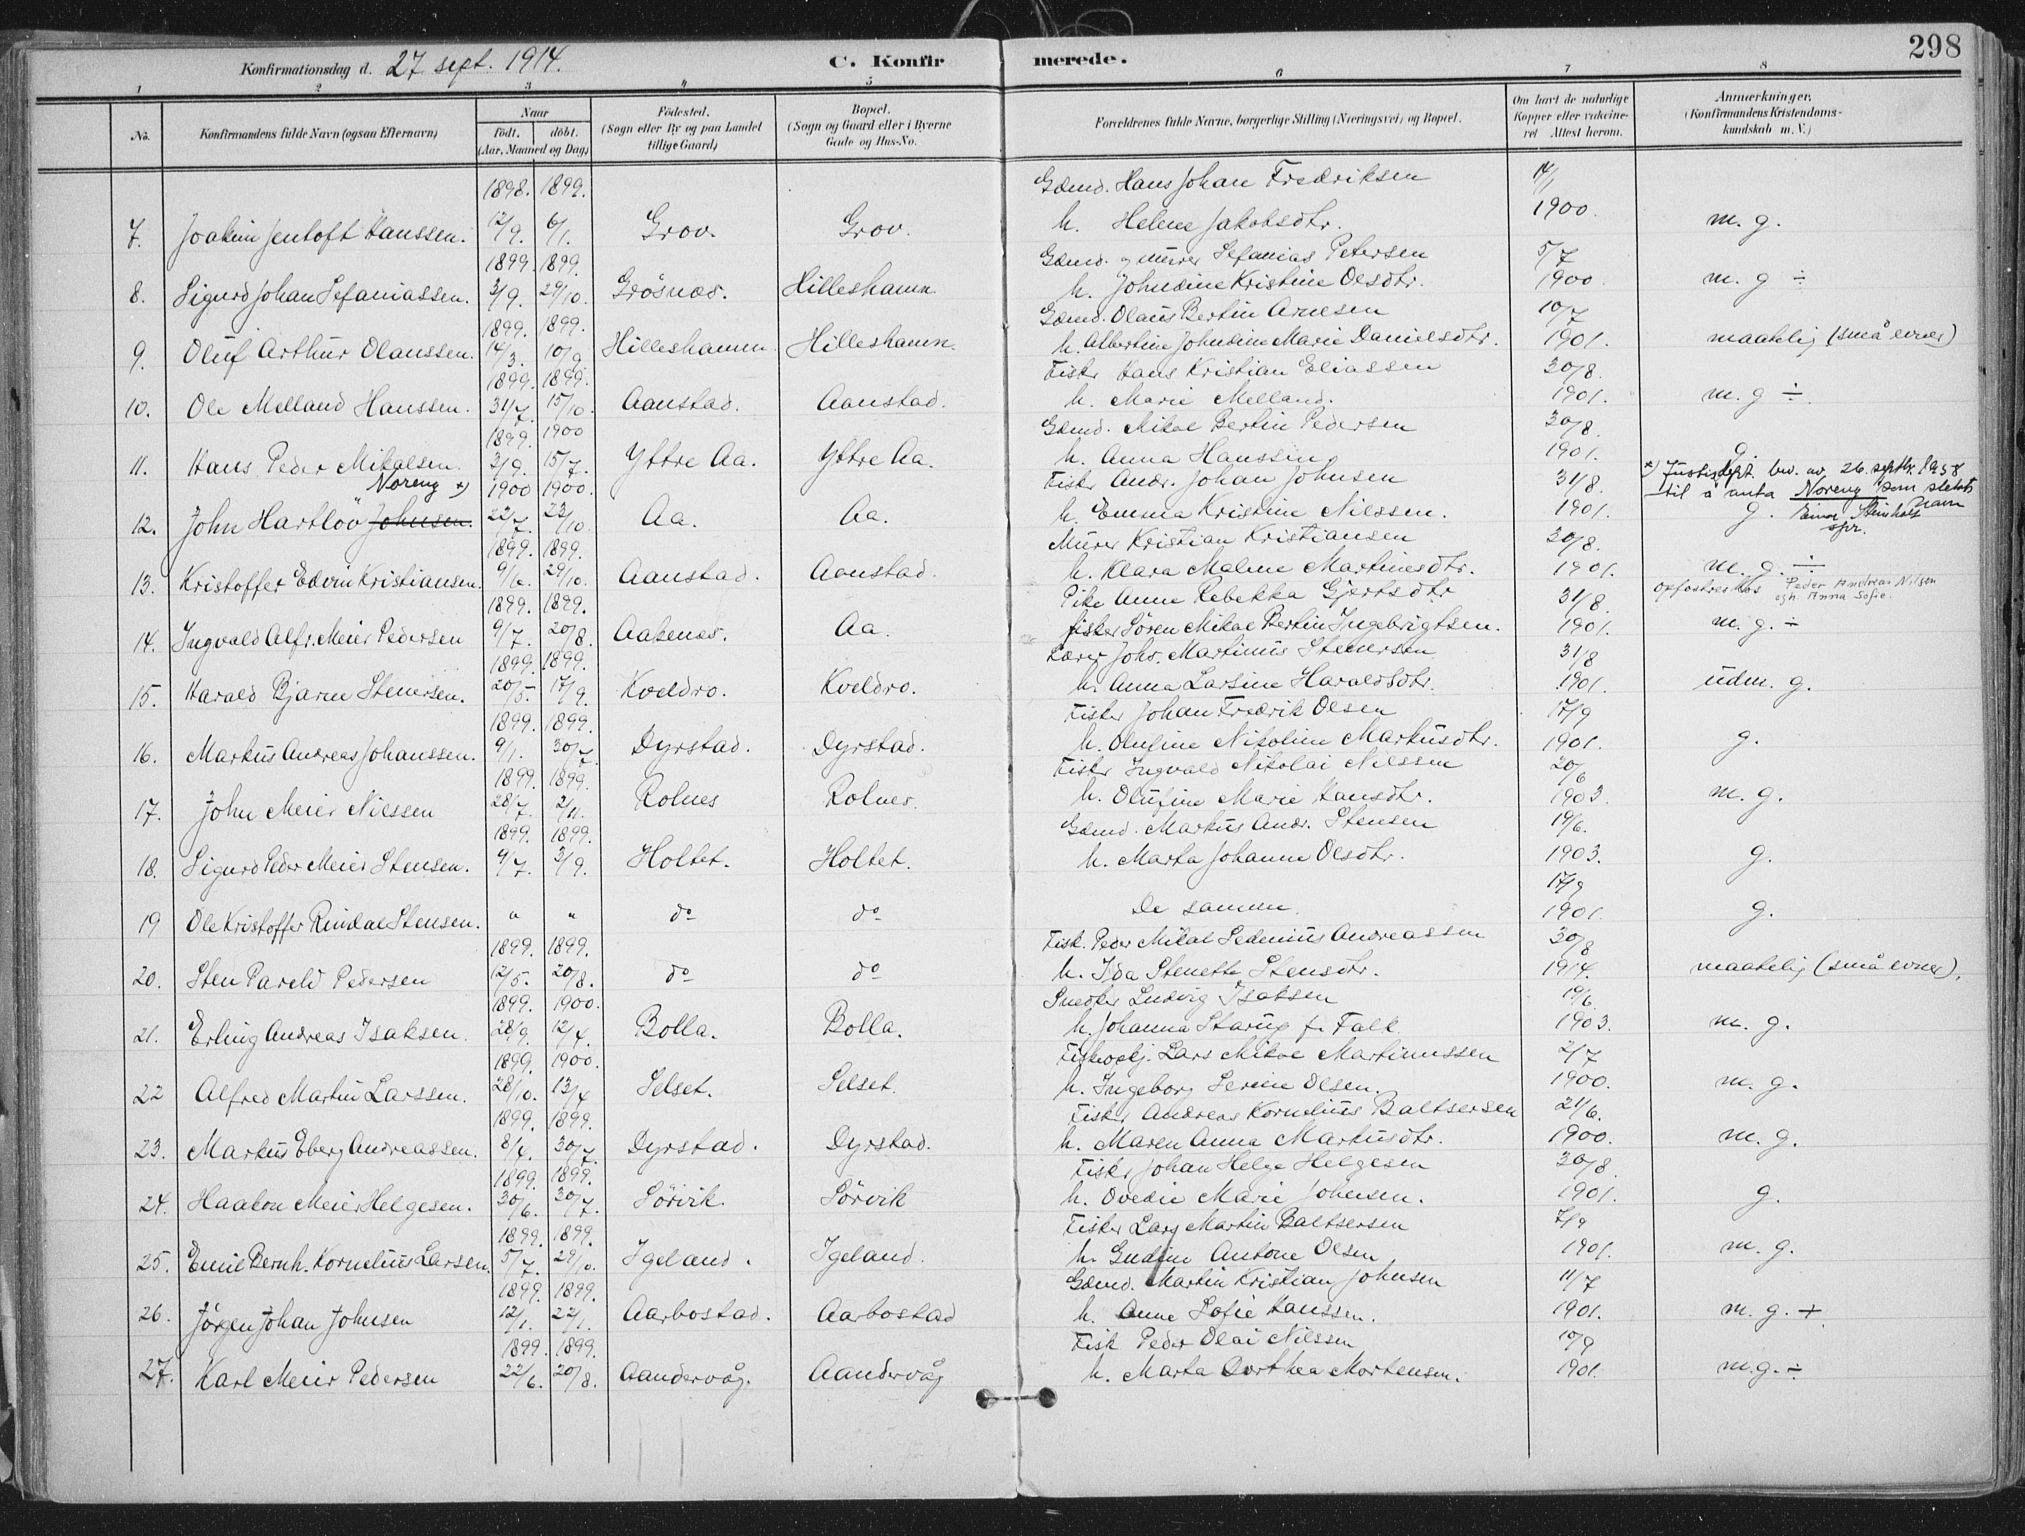 298
Konfirmationsdag d. 27 sept. 1914.
C. Konfirmerede.
1 2 3 4 5 6 7 8
No. Konfirmandens fulde Navn (ogsaa Efternavn) Naar født. døbt. (Aar, Maaned og Dag) Fødested. (Sogn eller By og paa Landet tillige Gaard) Bopæl. (Sogn og Gaard eller i Byerne Gade og Hus-No. Forældrenes fulde Navne, borgerlige Stilling (Næringsvei) og Bopæl. Om havt de naturlige Kopper eller vakcineret Attest herom. Anmærkninger. (Konfirmandens Kristendomskundskab m. V.)
1898. 1899. Gdmd. Hans Johan Fredriksen 14/1
7. Joakim Jentoft Hanssen. 12/9. 6/1. Grov. Grov. h. Helene Jakobsdtr. 1900. m. g.
1899. 1899. Gdmd. og murer Sefanias Petersen 5/7
8. Sigurd Johan Sefaniassen. 3/9. 29/10. Grösnes. Hilleshamn h. Johndine Kristine Olsdtr. 1900 m. g ÷
1899. 1899. Gdmd. Olaus Bertin Arnesen 10/7
9. Oluf Arthur Olaussen. 14/3. 10/9. Hilleshamn. Hilleshamn. h. Albertine Johndine Marie Danielsdtr. 1901. maatelig (små evner)
1899. 1899. Fisker Hans Kristian Eliassen 30/8.
10. Ole Melland Hanssen. 31/7. 15/10. Aanstad. Aanstad. h. Marie Melland. 1901. m. g ÷.
1899. 1900 Gdmd. Mikal Bertin Pedersen 30/8.
11. Hans Peder Mikalsen. 3/9. 15/7. Yttre Aa. Yttre Aa. h. Anna Hanssen 1901. g.
Noreng x) 1900 1900. Fisker Andr. Johan Johnsen 31/8. x) Justisdept. bev. av 26. septbr. 1958 til å anta Noreng som slektsnavn
12. John Hartlöv Johnsen. 22/7. 23/10. Aa. Aa. h. Emma Kristine Nilssen. 1901. g. Einar Steinholt spr.
1899. 1899. Murer Kristian Kristiansen 30/8.
13. Kristoffer Edvin Kristiansen. 9/6. 29/10. Aanstad. Aanstad. h. Klara Malene Martinesdtr. 1901. m. g. ÷
1899. 1899. Pike Anne Rebekka Gjertsdtr 31/8. opfostres hos Peder Andreas Nilsen ogh Anna Sofie.
14. Ingvald Alfr. Meier Pedersen 9/7. 20/8. Aakenes. Aa. fisker Sören Mikal Bertin Ingebrigtsen. 1901. m. g. ÷
1899. 1899. Lærer Johs. Martinus Stenersen 31/8
15. Harald Bjarne Stenersen. 20/5. 17/9. Kveldro. Kveldro. h. Anna Larsine Haraldsdtr. 1901. udm. g.
1899. 1899. Fisker Johan Fredrik Olsen 17/9
16. Markus Andreas Johanssen. 9/1. 30/7. Dyrstad. Dyrstad. h. Olufine Nikoline Markusdtr. 1901. g.
1899. 1899. Fisker Ingvald Nikolai Nilssen 20/6
17. John Meier Nilssen 28/7. 2/11. Rolnes Rolnes. h. Olufine Marie Hansdtr. 1903. m. g.
1899. 1899. Gdmd. Markus Andr. Stensen 19/6.
18. Sigurd Peder Meier Stensen. 9/7. 3/9. Holtet. Holtet. h. Marta Johanne Olsdtr. 1903. g.
17/9
19 Ole Kristoffer Rindal Stensen. " " do do De samme. 1901. g.
1899. 1899. Fisk. Peder Mikal Sedenius Andreassen 30/8
20. Sten Pareld Pedersen 12/5. 20/8. do do h. Ida Stenette Stensdtr. 1914. maatelig (små evner).
1899. 1900. Snedker Ludvig Isaksen 19/6
21. Erling Andreas Isaksen. 28/9. 12/4. Bolla. Bolla. h. Johanna Starup f. Falk 1903. m. g.
1899. 1900. Fiskeopkj. Lars Mikal Martinussen 2/7
22 Alfred Martin Larssen. 28/10. 13/4 Selset. Selset. h. Ingeborg Serine Olsen. 1900. m. g.
1899. 1899. Fisker Andreas Kornelius Baltsersen 21/6.
23. Markus Eberg Andreassen. 8/4. 30/7. Dyrstad. Dyrstad. h. Maren Anna Markusdtr. 1900. m. g.
1899. 1899. Fisker Johan Helge Helgesen 30/8.
24. Haakon Meier Helgesen. 30/6. 30/7. Sörvik. Sörvik h. Ovedie Marie Johnsen. 1901. g.
1899. 1899. Fisker Lars Martin Baltsersen 7/9
25. Emil Bernh. Kornelius Larsen. 5/7. 29/10. Igeland. Igeland. h. Gudine Antone Olsen 1901. m. g.
1899. 1899. Gdmd. Martin Kristian Johnsen 11/7
26. Jörgen Johan Johnsen 12/1. 22/1. Aarbostad. Aarbostad h. Anne Sofie Hanssen. 1901. m. g. +
1899. 1899. Fisk Peder Olai Nilssen 10/9
27. Karl Meier Pedersen 22/6. 20/8. Aandervåg. Aandervåg h. Marta Dorthea Mortensen. 1901. m. g. ÷